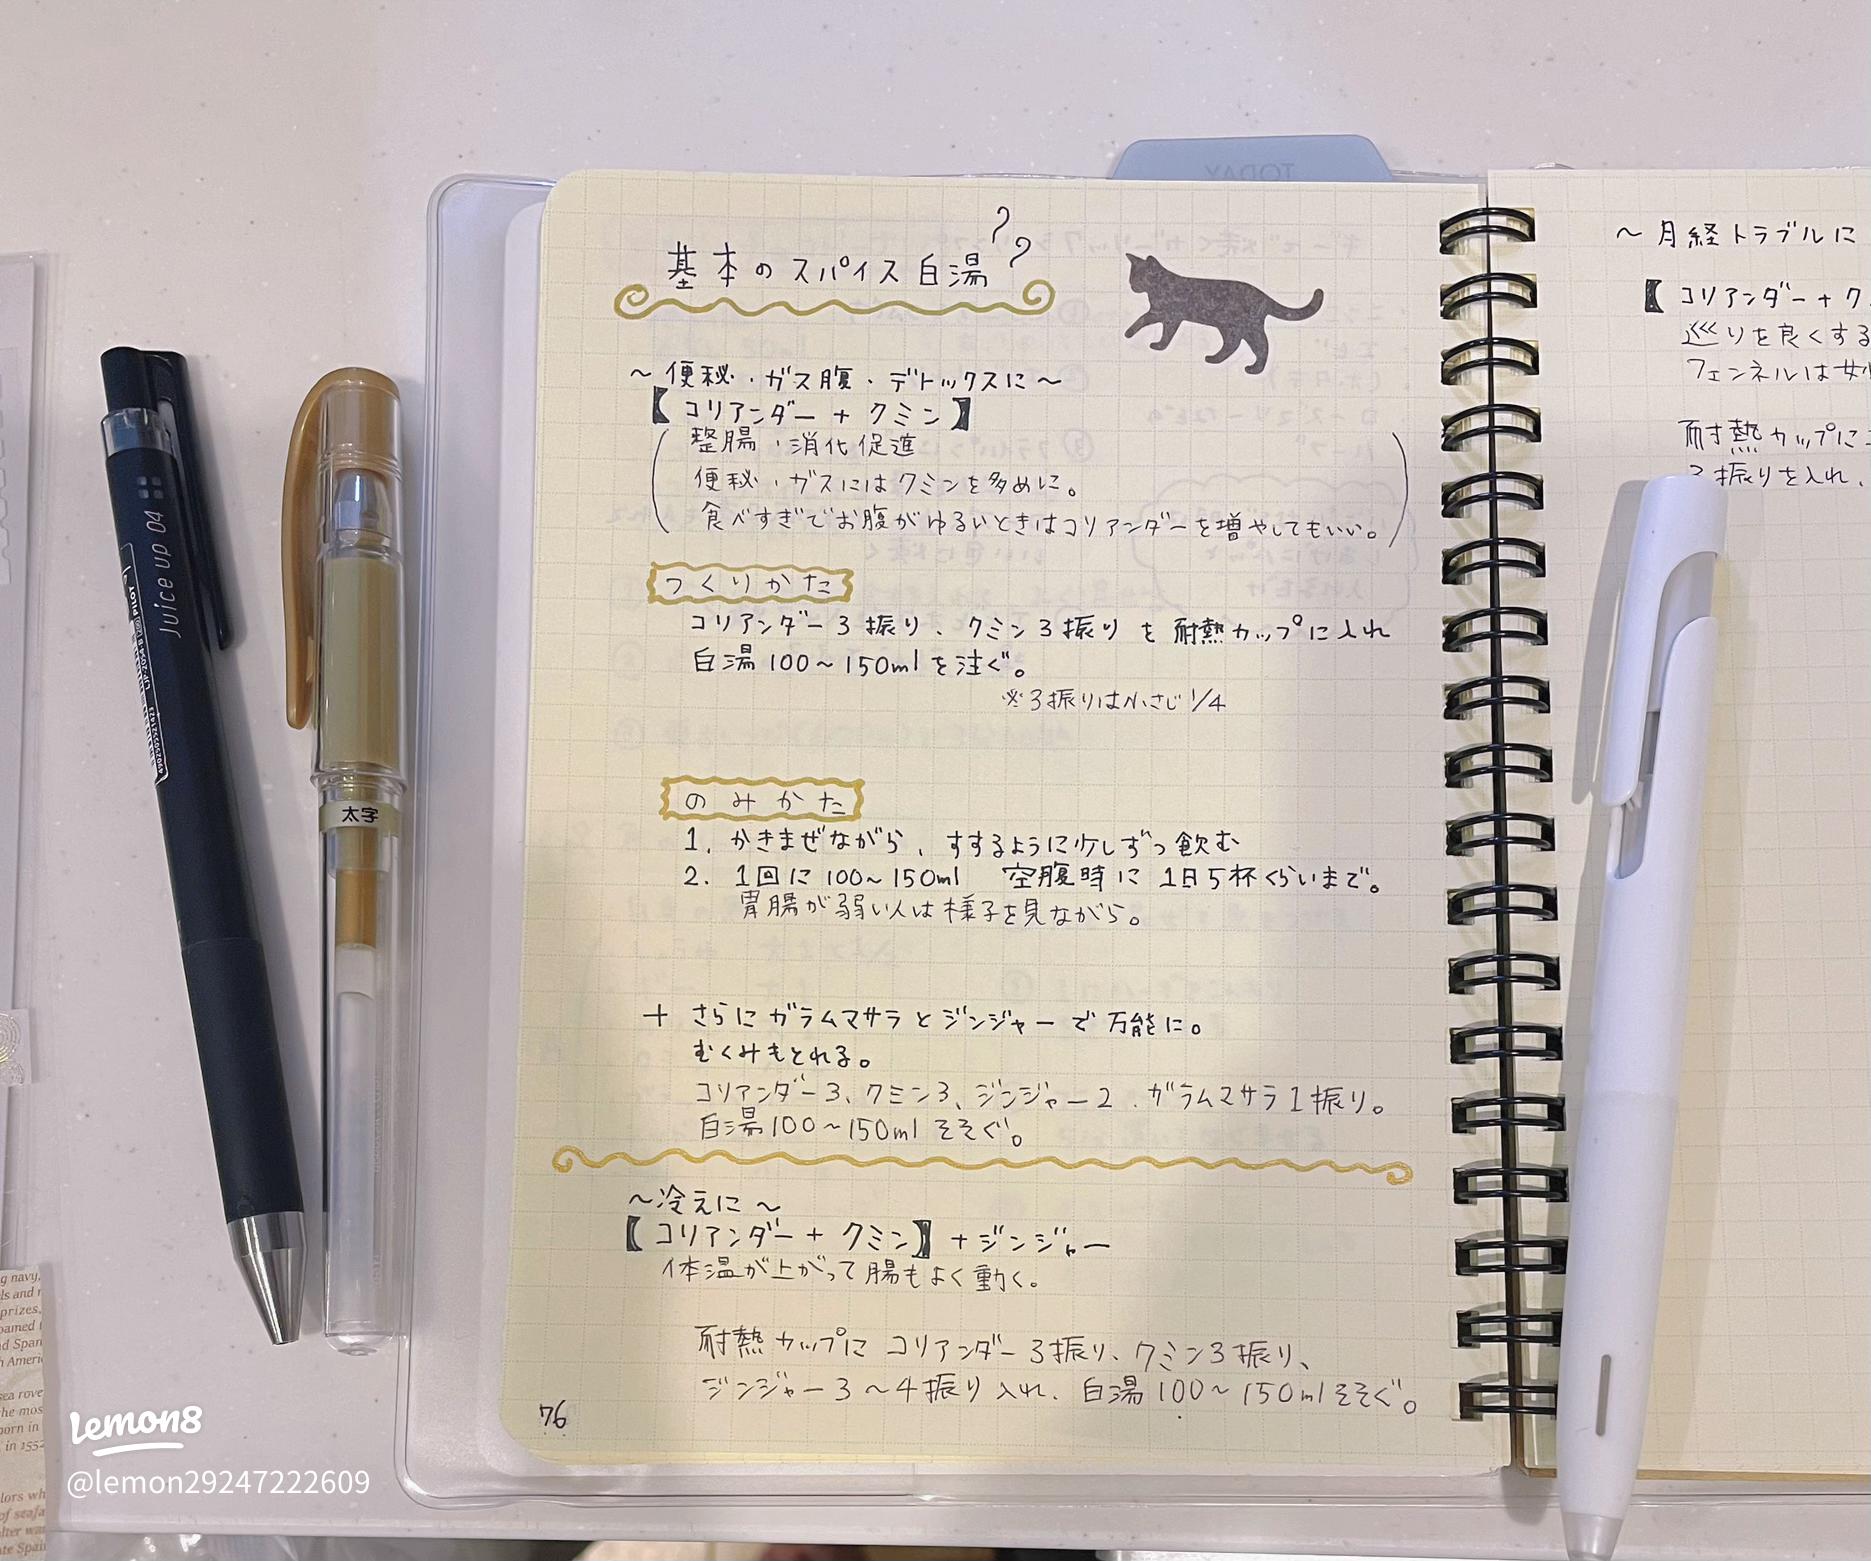 TODAY
基本のスパイス白湯
～便秘・ガス腹・デトックスに～
【コリアンダー + クミン】
整腸・消化促進
便秘・ガスにはクミンを多めに。
食べすぎでお腹がゆるいときはコリアンダーを増やしてもいい。
つくりかた
コリアンダー3振り、クミン3振りを耐熱カップに入れ
白湯100～150mlを注ぐ。
※3振りは小さじ1/4
のみかた
1. かきまぜながら、すするように少しずつ飲む
2. 1回に100～150ml 空腹時に1日5杯くらいまで。
胃腸が弱い人は様子を見ながら。
+ さらにガラムマサラとジンジャーで万能に。
むくみもとれる。
コリアンダー3、クミン3、ジンジャー2、ガラムマサラ1振り。
白湯100～150mlそそぐ。
～冷えに～
【コリアンダー + クミン】+ジンジャー
体温が上がって腸もよく動く。
耐熱カップにコリアンダー3振り、クミン3振り、
ジンジャー3～4振り入れ、白湯100～150mlそそぐ。
76
～月経トラブルに
【コリアンダー + ク
巡りを良くする
フェンネルは女
耐熱カップにコ
3振りを入れ、
Juice up 04
PILOT
太字
lemon8
@lemon29247222609